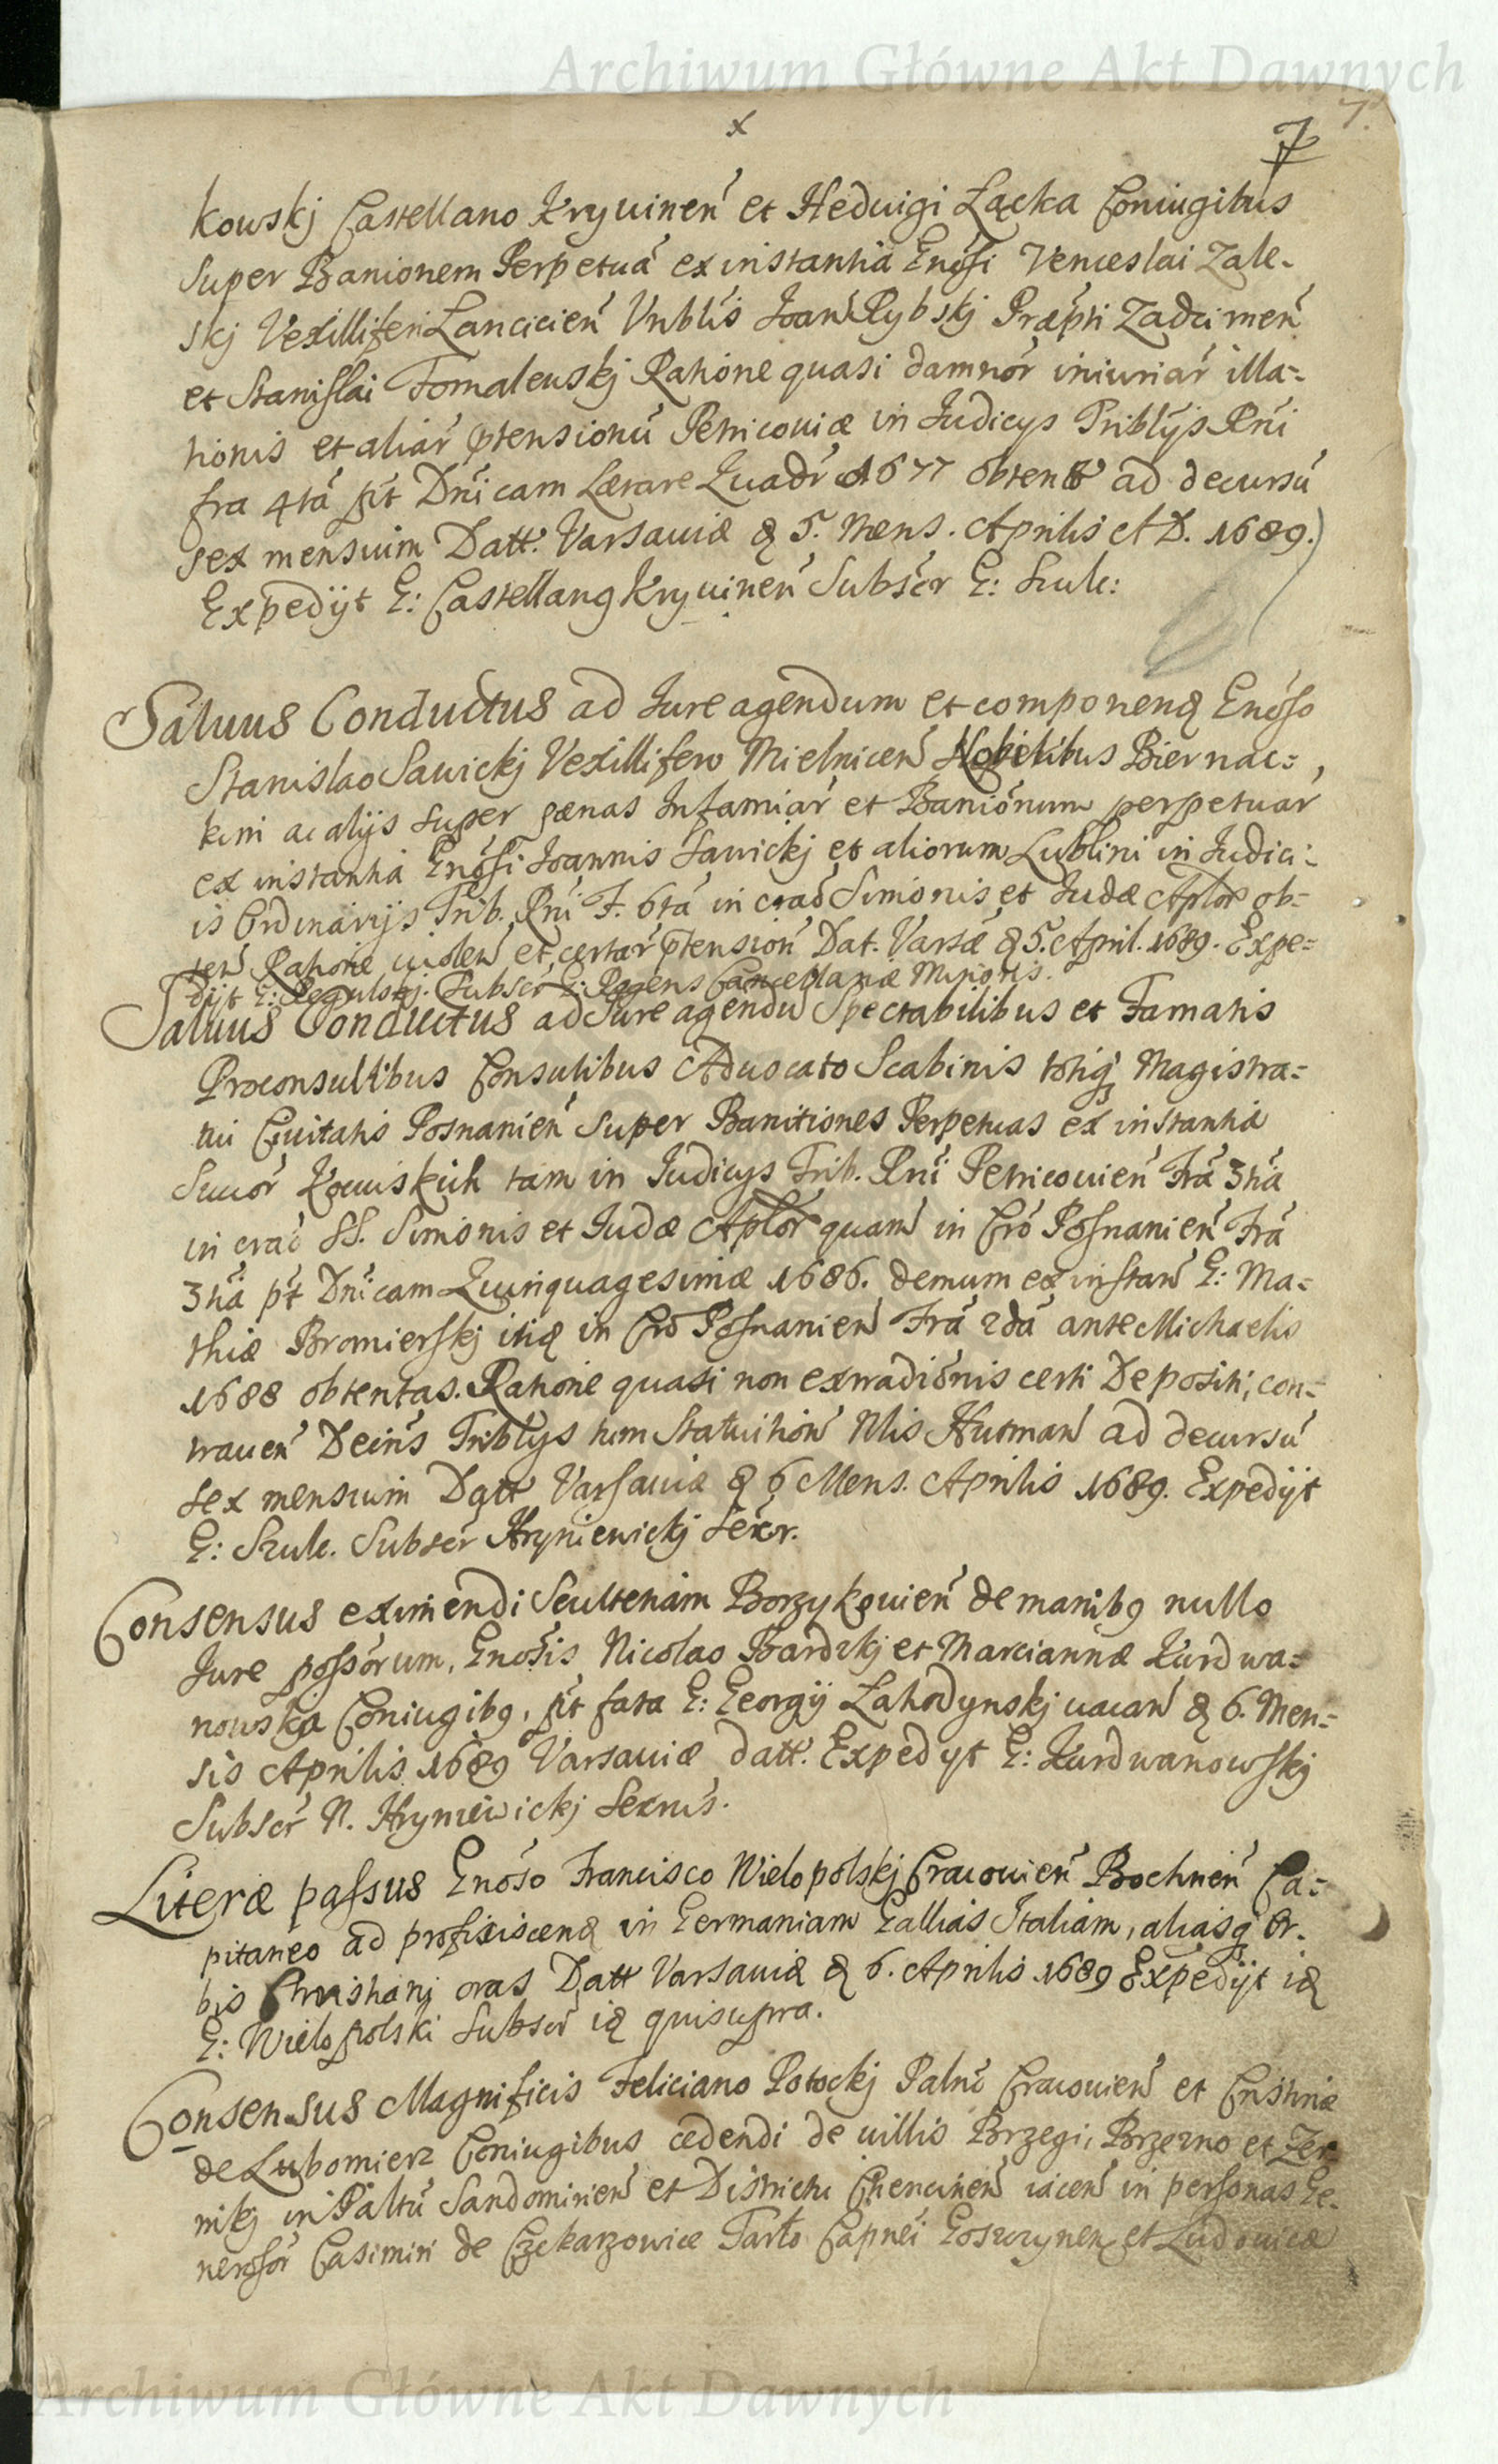 Archiwum Główne Akt Dawnych
x
7
7.
kowskj Castellano Kryuinen et Heduigi Łącka Coniugibus
super Banionem Perpetuā ex instantia Gnosi Venceslai Zale-
skj Vexilliferi Lancicien Vnblis Joan Rybskj Præpti Zadzimen
et Stanislai Tomaleuskj Rahone quasi damnor iniuriar illa-
tionis et aliar ptensionū Petricouiæ in Judicys Triblijs Rni
fra 4tā pt Dnicam Lætare Quadr 1677 obtent ad decursū
sex mensium Datt. Varsauiæ d 5. Mens. Aprilis A D. 1689.
Expedijt G: Castellanus Kryuinen Subscr G: Szulc:
Saluus Conductus ad Jure agendum et componend Gnoso
Stanislao Sawickj Vexillifero Mielnicen Nobilibus Biernac-
kim ac alijs super pænas Infamiar et Banionum perpetuar
ex instantia Gnosi Joannis Sawickj et aliorum Lublini in Judici-
is Ordinarijs Trib. Rni F. 6ta in crad Simonis et Judæ Aplor ob-
ten Ratione violen et certar ptension Dat. Varsæ d 5. April. 1689. Expe-
dijt G: Regulskj. Subscr G: Regens Cancellariæ Minoris.
Saluus Conductus ad Jure agendū Spectabilibus et Famatis
Proconsulibus Consulibus Aduocato Scabinis totiq Magistra-
tui Ciuitatis Posnanien super Banitiones Perpetuas ex instantia
Succor Kowiskich tam in Judicys Trib. Rni Petricouien Fra 3tia
in crad SS. Simonis et Judæ Aplor quam in Cro Posnanien Fra
3tia pt Dnicam Quinquagesimæ 1686. demum ex instan G: Ma-
thiæ Bromierskj itid in Cro Posnanien Fra 2da ante Michaelis
1688 obtentas. Rahone quasi non extraditionis certi Depositi, con-
trauen Decins Triblys tum Statuition Nlis Hutman ad decursū
sex mensium Datt Varsauiæ d 6 Mens. Aprilis 1689. Expedijt
G: Szulc. Subscr Hryniewickj Secr.
Consensus eximendi Scultetiam Borzykouien de manibus nullo
Jure possorum, Gnosis Nicolao Bardzkj et Mariannæ Kurdwa-
nowskja Coniugibus, pt fata G: Georgij Zahodynskj vacan d 6. Men-
sis Aprilis 1689 Varsauiæ datt. Expedyt G: Kurdwanowskj
Subscr N. Hryniewickj Secrius.
Literæ passus Gnoso Francisco Wielopolskj Cracouien Bochnen Ca-
pitaneo ad proficiscend in Germaniam Gallias Italiam, aliasq Or-
bis Christianj oras Datt Varsauiæ d 6. Aprilis 1689 Expedijt id
G: Wielopolski Subscr id qui supra.
Consensus Magnificis Feliciano Potockj Palno Cracouien et Cristinæ
de Lubomierz Coniugibus cedendi de uillis Brzegi, Brzezno et Zer-
nikj in Paltu Sandomirien et Districtu Chencinen iacen in personas Ge-
nerosor Casimiri de Czekarzowice Tarło Capnei Goszczynen et Ludouicæ
Archiwum Główne Akt Dawnych